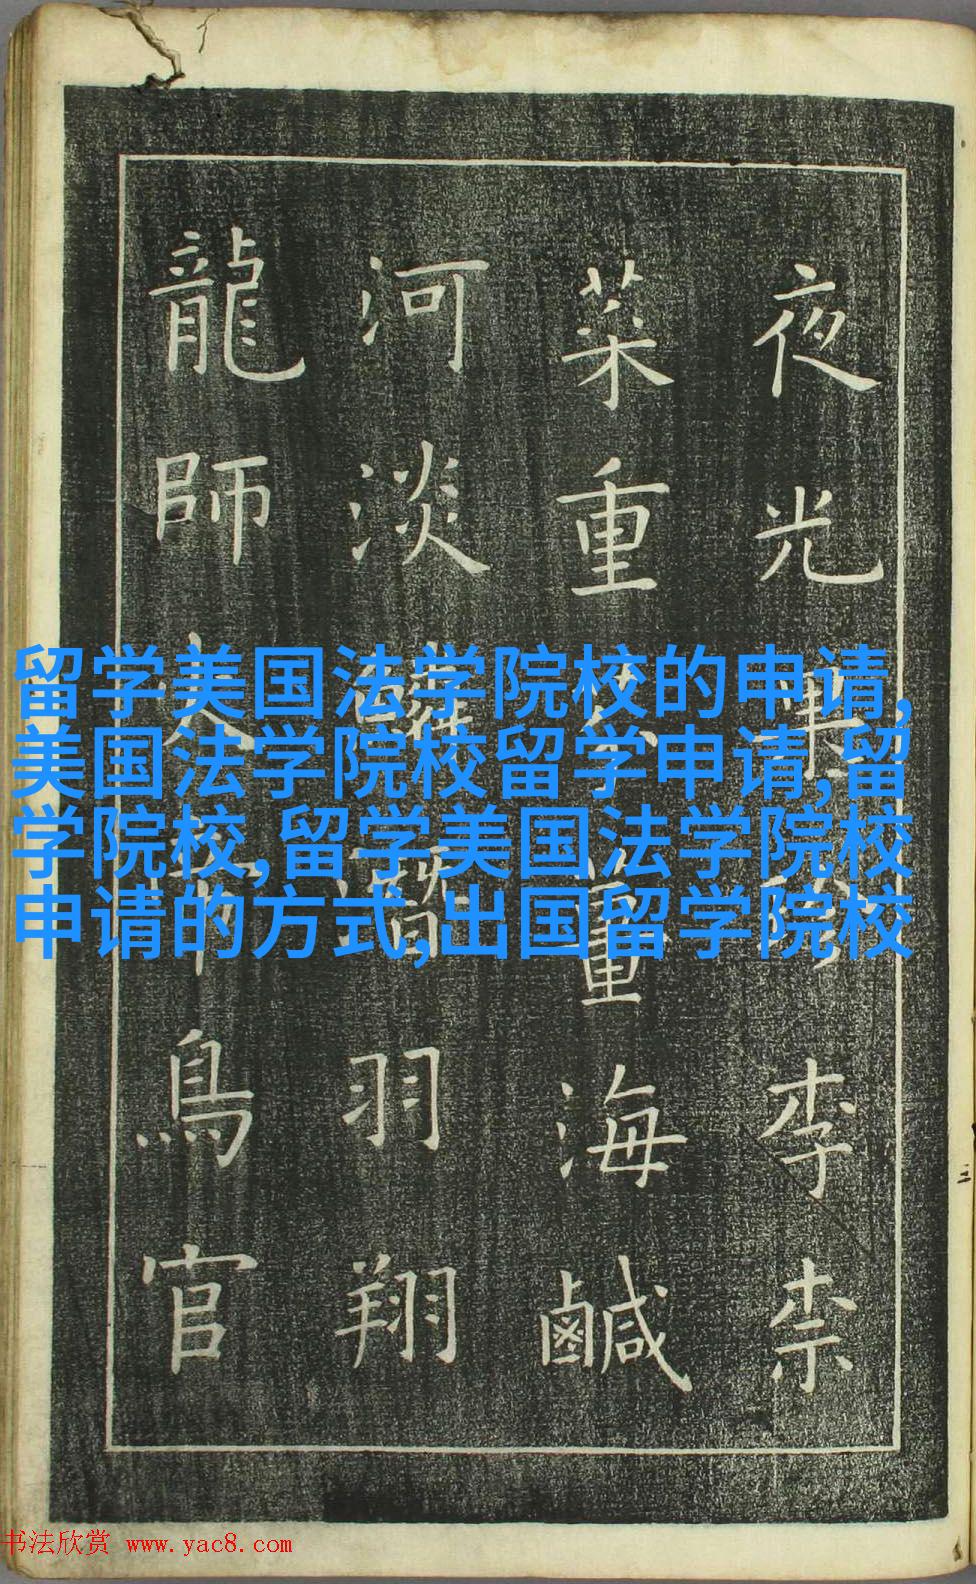 夜光果珍李柰
菜重芥薑海鹹
河淡鱗潛羽翔
龍師火帝鳥官
留学美国法学院校的申请,
美国法学院校留学申请,留
学院校,留学美国法学院校
申请的方式,出国留学院校
书法欣赏 www.yac8.com